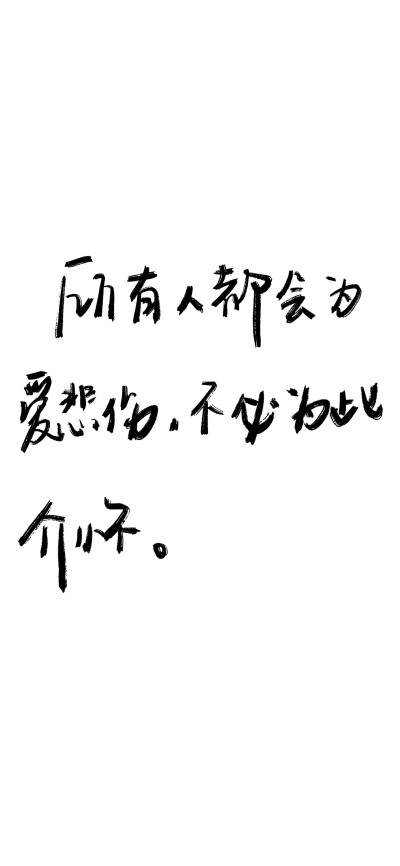 所有人都会为
爱悲伤,不必为此
介怀。